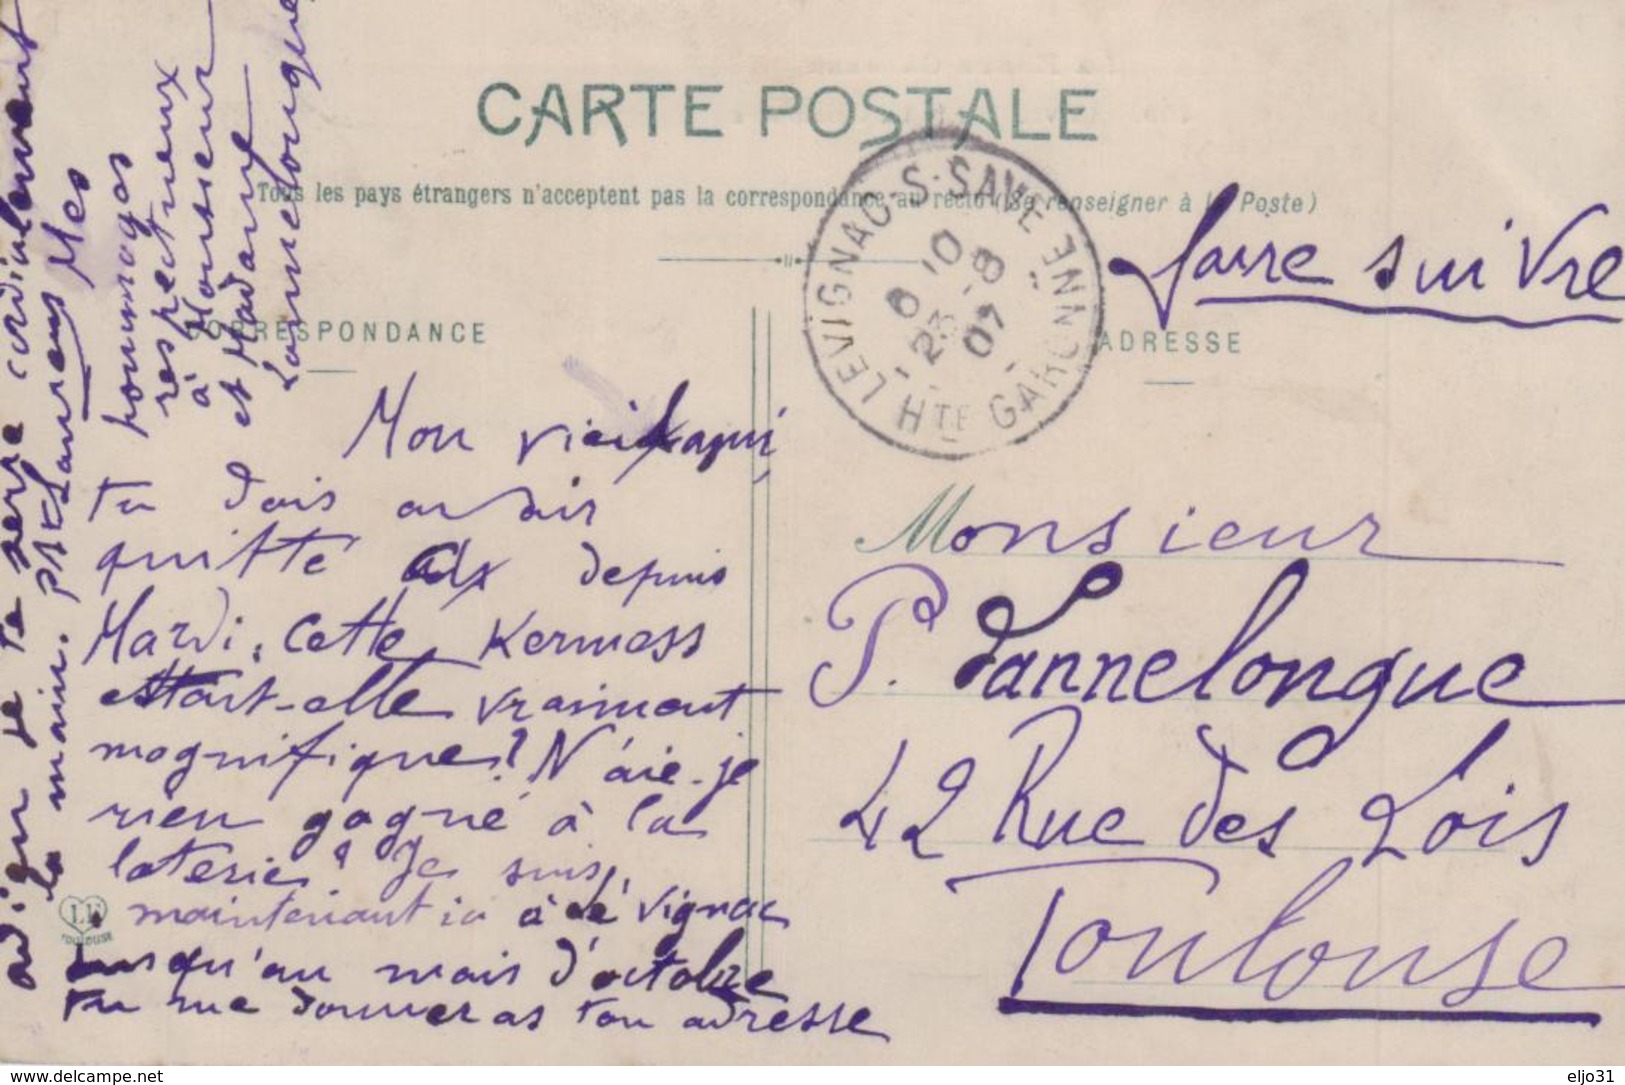 CARTE POSTALE
Tous les pays étrangers n'acceptent pas la correspondance au recto (Se renseigner à la Poste)
CORRESPONDANCE
ADRESSE
LEVIGNAC-S-SAVE
HTE GARONNE
8 10
23 -8
07
faire suivre
Monsieur
P. Lannelongue
42 Rue des Lois
Toulouse
Mon vieil
tu dois avoir
quitté Ax depuis
Mardi, Cette Kermess
était-elle vraiment
magnifique? N'aie-je
rien gagné à la
loterie? Je suis
maintenant ici à Lévignac
jusqu'au mois d'octobre
tu me donneras ton adresse
adieu je te serre cordialement
la main. Laurens Mes
hommages
respectueux
à Monsieur
et Madame
Lannelongue
LF
TOULOUSE
www.delcampe.net
eljo31